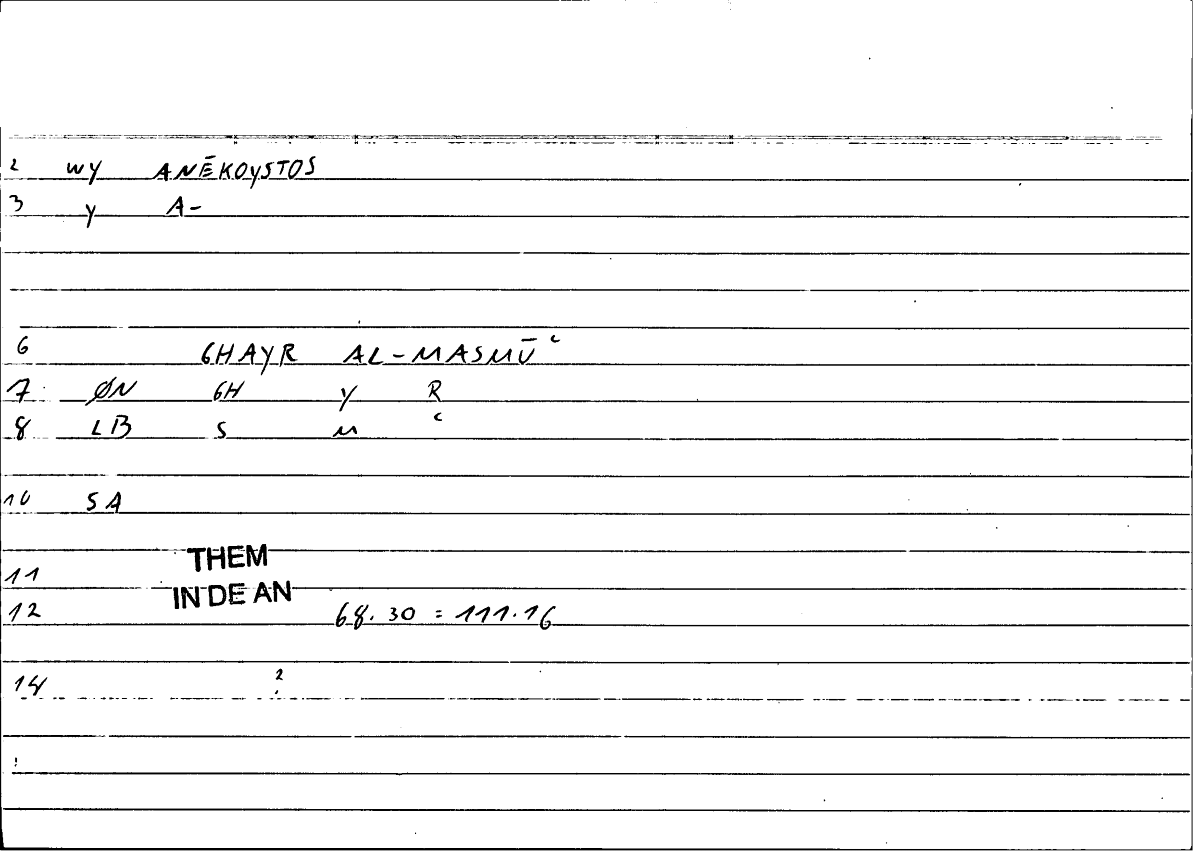 2 WY ANĒKOYSTOS
3 Y A-
6 GHAYR AL-MASMŪʿ
7 ØN GH Y R
8 LB S M ʿ
10 SA
THEM
11
IN DE AN
12 68.30 = 111.16
14 2